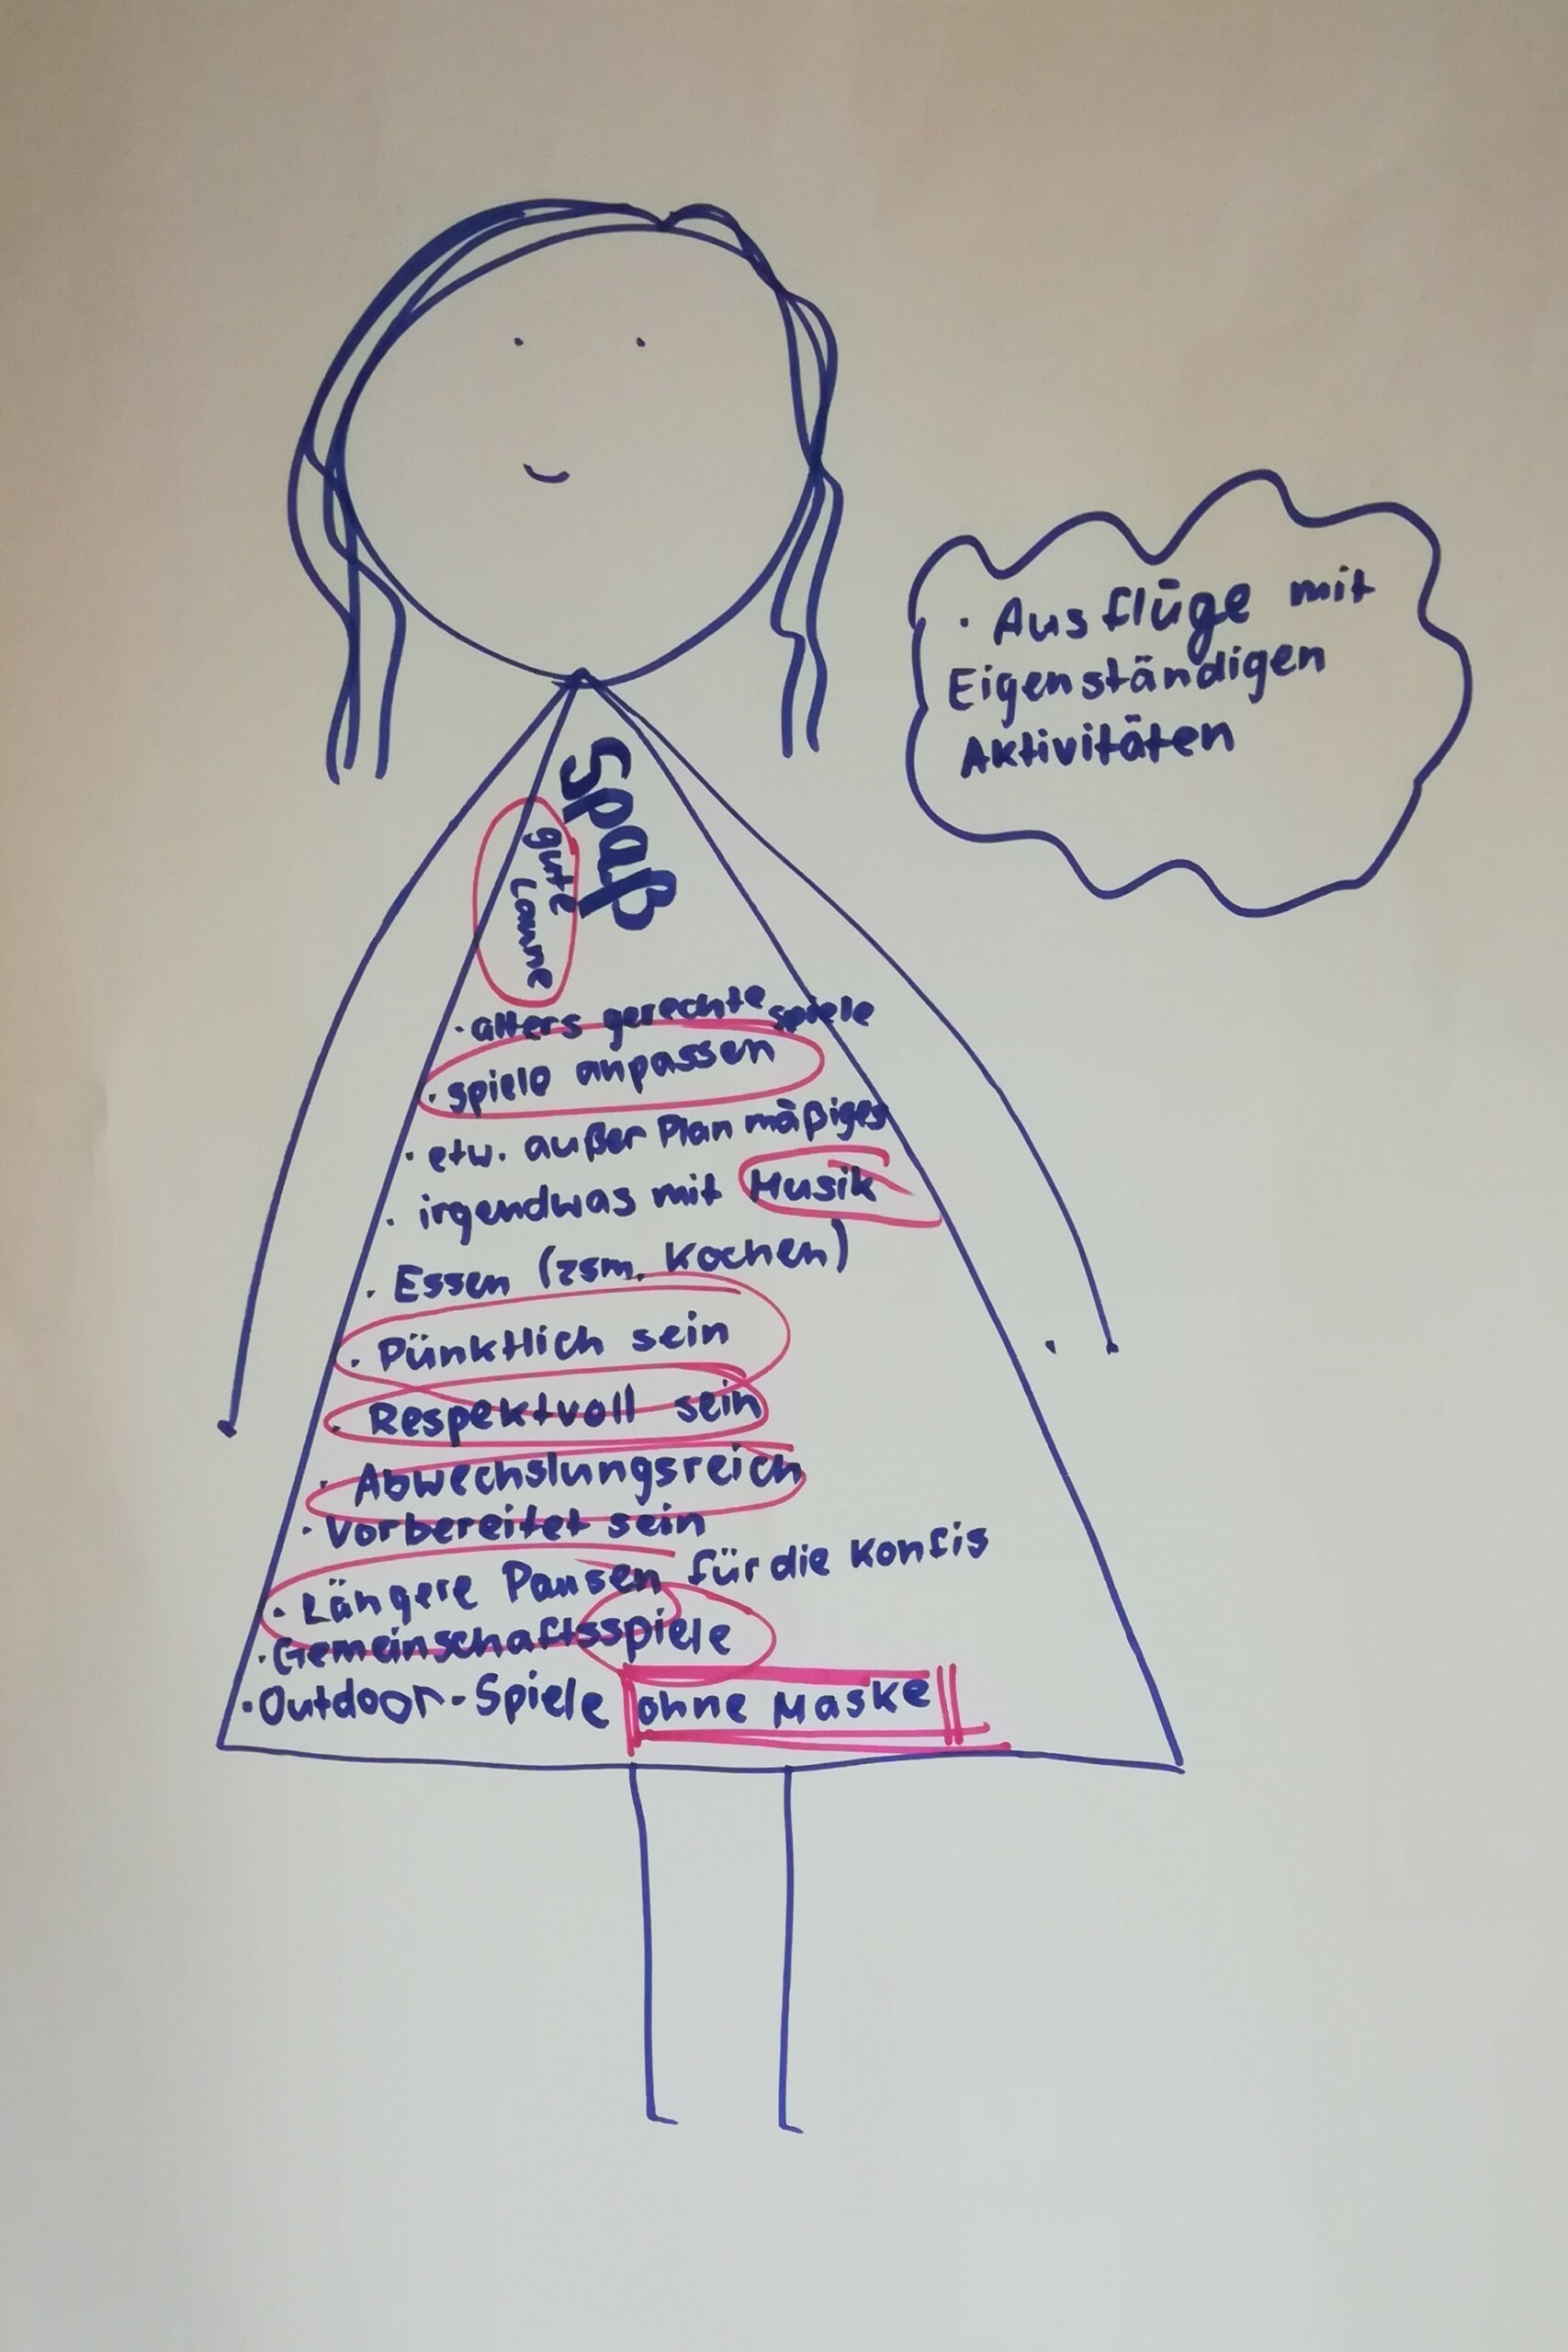 · Ausflüge mit
Eigenständigen
Aktivitäten
Spaß
gute
Laune
· alters gerechte spiele
· spiele anpassen
· etw. außer Plan mäßiges
· irgendwas mit Musik
· Essen (zsm. Kochen)
· Pünktlich sein
· Respektvoll sein
· Abwechslungsreich
· Vorbereitet sein
· Längere Pausen für die Konfis
· Gemeinschaftsspiele
· Outdoor-Spiele ohne Maske